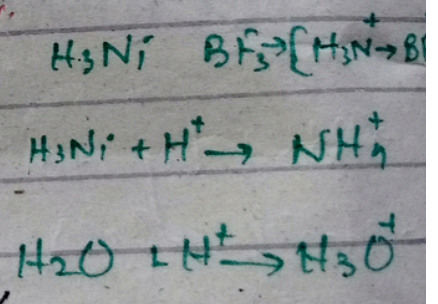 H₃N: BF₃→[H₃N⁺→B
H₃N: + H⁺ → NH₄⁺
H₂O + H⁺ → H₃O⁺